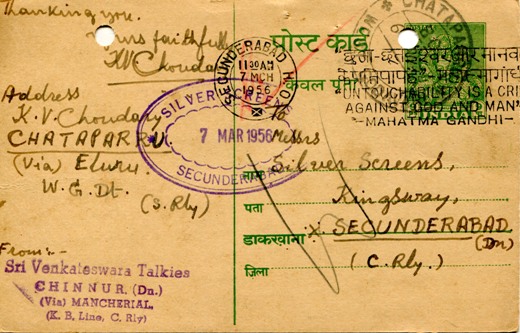 Thanking you.
Yours faithfully
KV Choudary
Address
K.V. Choudary
CHATAPARRU.
(via) Eluru.
W.G.Dt.
(S.Rly)
From:-
Sri Venkateswara Talkies
CHINNUR, (Dn.)
(Via) MANCHERIAL,
(K. B. Line, C. Rly)
SILVER SCREENS
7 MAR 1956
SECUNDERABAD
SECUNDERABAD
11 30 AM
7 MCH
1956
CHATAPA
पोस्ट कार्ड
केवल
UNTOUCHABILITY IS A CRI
AGAINST GOD AND MAN
-MAHATMA GANDHI-
Messrs
नाम Silver Screens,
पता Kingsway,
डाकखाना X. SECUNDERABAD
(Dn)
जिला (C. Rly.)